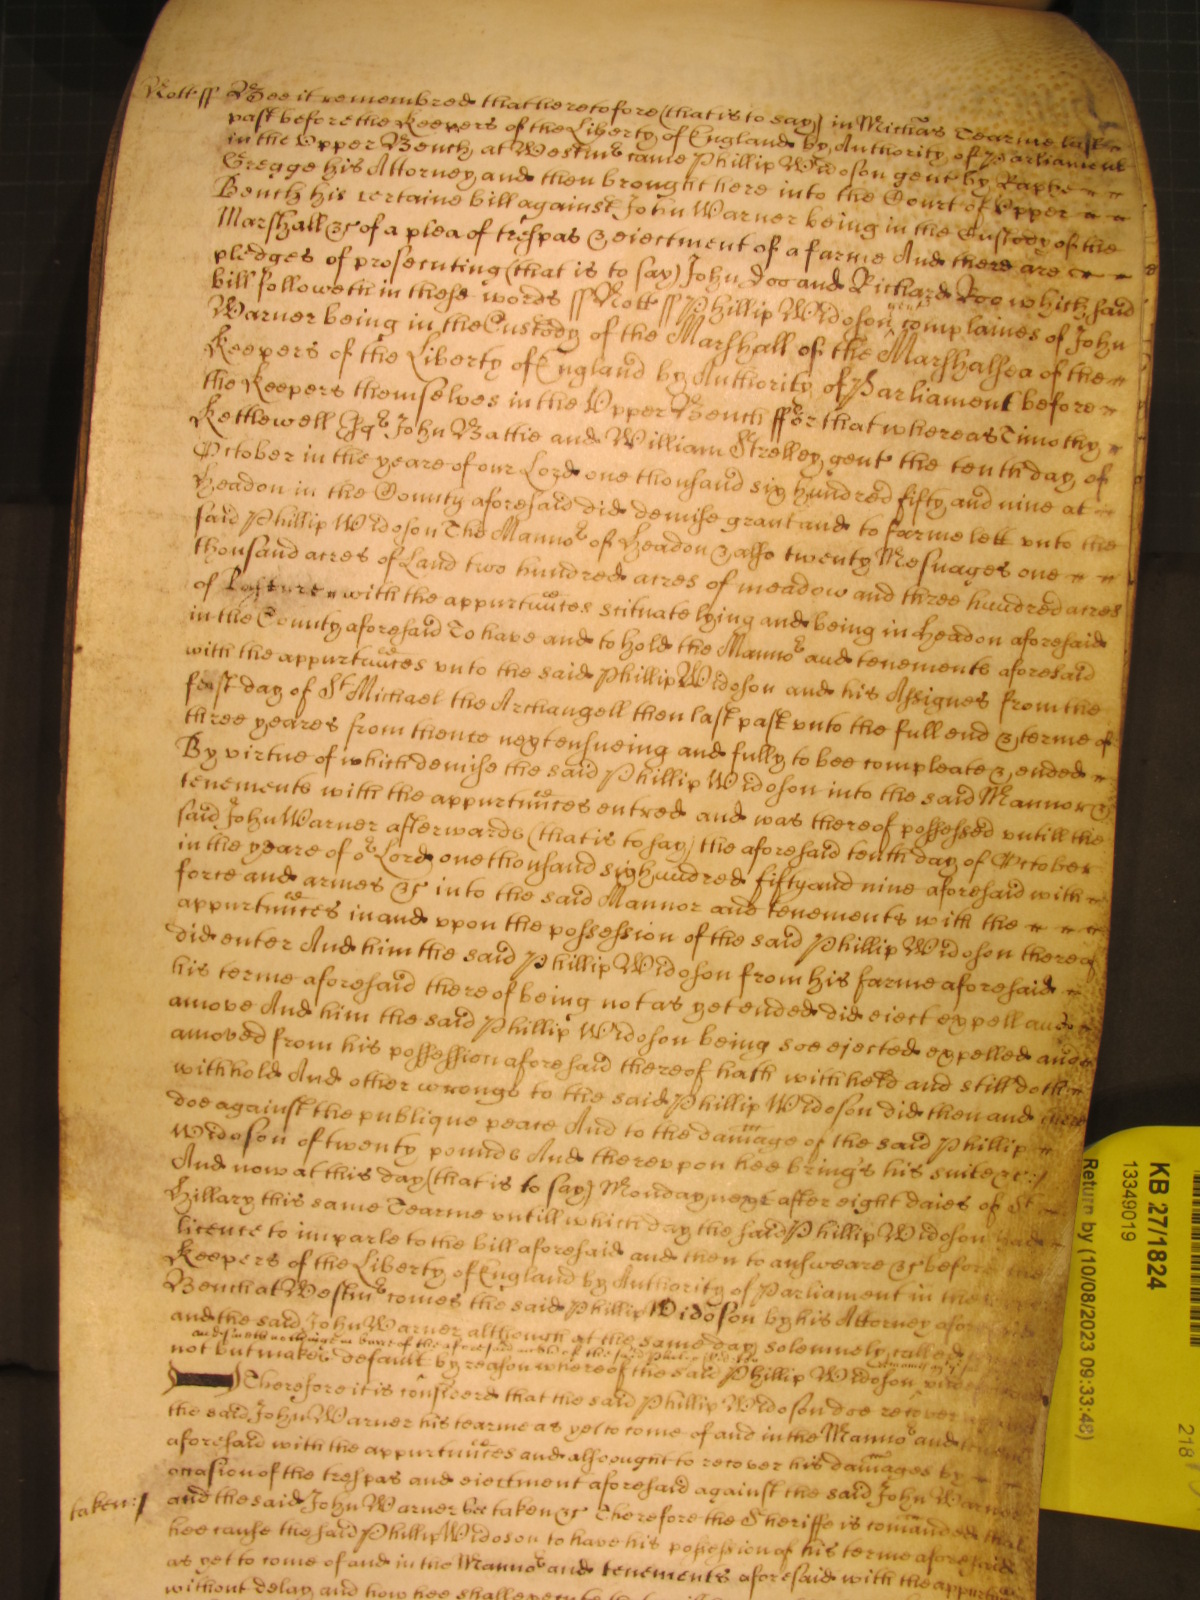 Nott ss Bee it remembred that heretofore (that is to say) in Michās Tearme last
past before the Keepers of the Liberty of England by Authority of Parliament
in the Upper Bench at Westm̄ came Phillip Widoson gent by Raphe
Gregge his Attorney and then brought here into the Court of Upper
Bench his certaine bill against John Warner being in the Custody of the
Marshall &c of a plea of trespas & eiectment of a farme And there are
pledges of prosecuting (that is to say) John Doo and Richard Roo which said
bill followeth in these words ss Nott ss Phillip Widoson gent complaines of John
Warner being in the Custody of the Marshall of the Marshalsea of the
Keepers of the Liberty of England by Authority of Parliament before
the Keepers themselves in the Upper Bench ffor that whereas Timothy
Kettlewell Esqr John Battie and William Strelley gent the tenth day of
October in the yeare of our Lord one thousand six hundred fifty and nine at
Headon in the County aforesaid did demise grant and to farme lett unto the
said Phillip Widoson The Mannor of Headon & also twenty Mesuages one
thousand acres of Land two hundred acres of meadow and three hundred acres
of Pasture with the appurtūnces scituate lying and being in Headon aforesaid
in the County aforesaid To have and to hold the Mannor and tenements aforesaid
with the appurtūnces unto the said Phillip Widoson and his Assignes from the
feast day of St Michael the Archangell then last past unto the full end & terme of
three yeares from thence next ensueing and fully to bee compleate & ended
By virtue of which demise the said Phillip Widoson into the said Mannor &
tenements with the appurtūnces entred and was thereof possessed untill the
said John Warner afterwards (that is to say) the aforesaid tenth day of October
in the yeare of or Lord one thousand six hundred fifty and nine aforesaid with
force and armes &c into the said Mannor and tenements with the
appurtūnces in and upon the possession of the said Phillip Widoson thereof
did enter And him the said Phillip Widoson from his farme aforesaid
his terme aforesaid thereof being not as yet ended did eiect expell and
amove And him the said Phillip Widoson being soe ejected expelled and
amoved from his possession aforesaid thereof hath withheld and still doth
withhold And other wrongs to the said Phillip Widoson did then and there
doe against the publique peace And to the dam̄age of the said Phillip
Widoson of twenty pounds And thereupon hee brings his suite &c
And now at this day (that is to say) Monday next after eight daies of St
Hillary this same Tearme untill which day the said Phillip Widoson had
licence to imparle to the bill aforesaid and then to answeare &c before the
Keepers of the Liberty of England by Authority of Parliament in the
Bench at Westm̄ comes the said Phillip Widoson by his Attorney aforesaid
and the said John Warner although at the same day solemnely called
and saieth nothing in barre of the aforesaid of the said Phillip Widoson
not but makes default by reason whereof the said Phillip Widoson
Therefore it is considered that the said Phillip Widoson doe recover against
the said John Warner his tearme as yet to come of and in the Mannor and tenemts
aforesaid with the appurtūnces and also ought to recover his dam̄ages by
occasion of the trespas and eiectment aforesaid against the said John Warner
taken: and the said John Warner bee taken &c Therefore the Sheriffe is com̄anded that
hee cause the said Phillip Widoson to have his possession of his terme aforesaid
as yet to come of and in the Mannor and tenements aforesaid with the appurtūnces
without delay and how hee shall
KB 27/1824
13349019
Return by (10/08/2023 09:33:48)